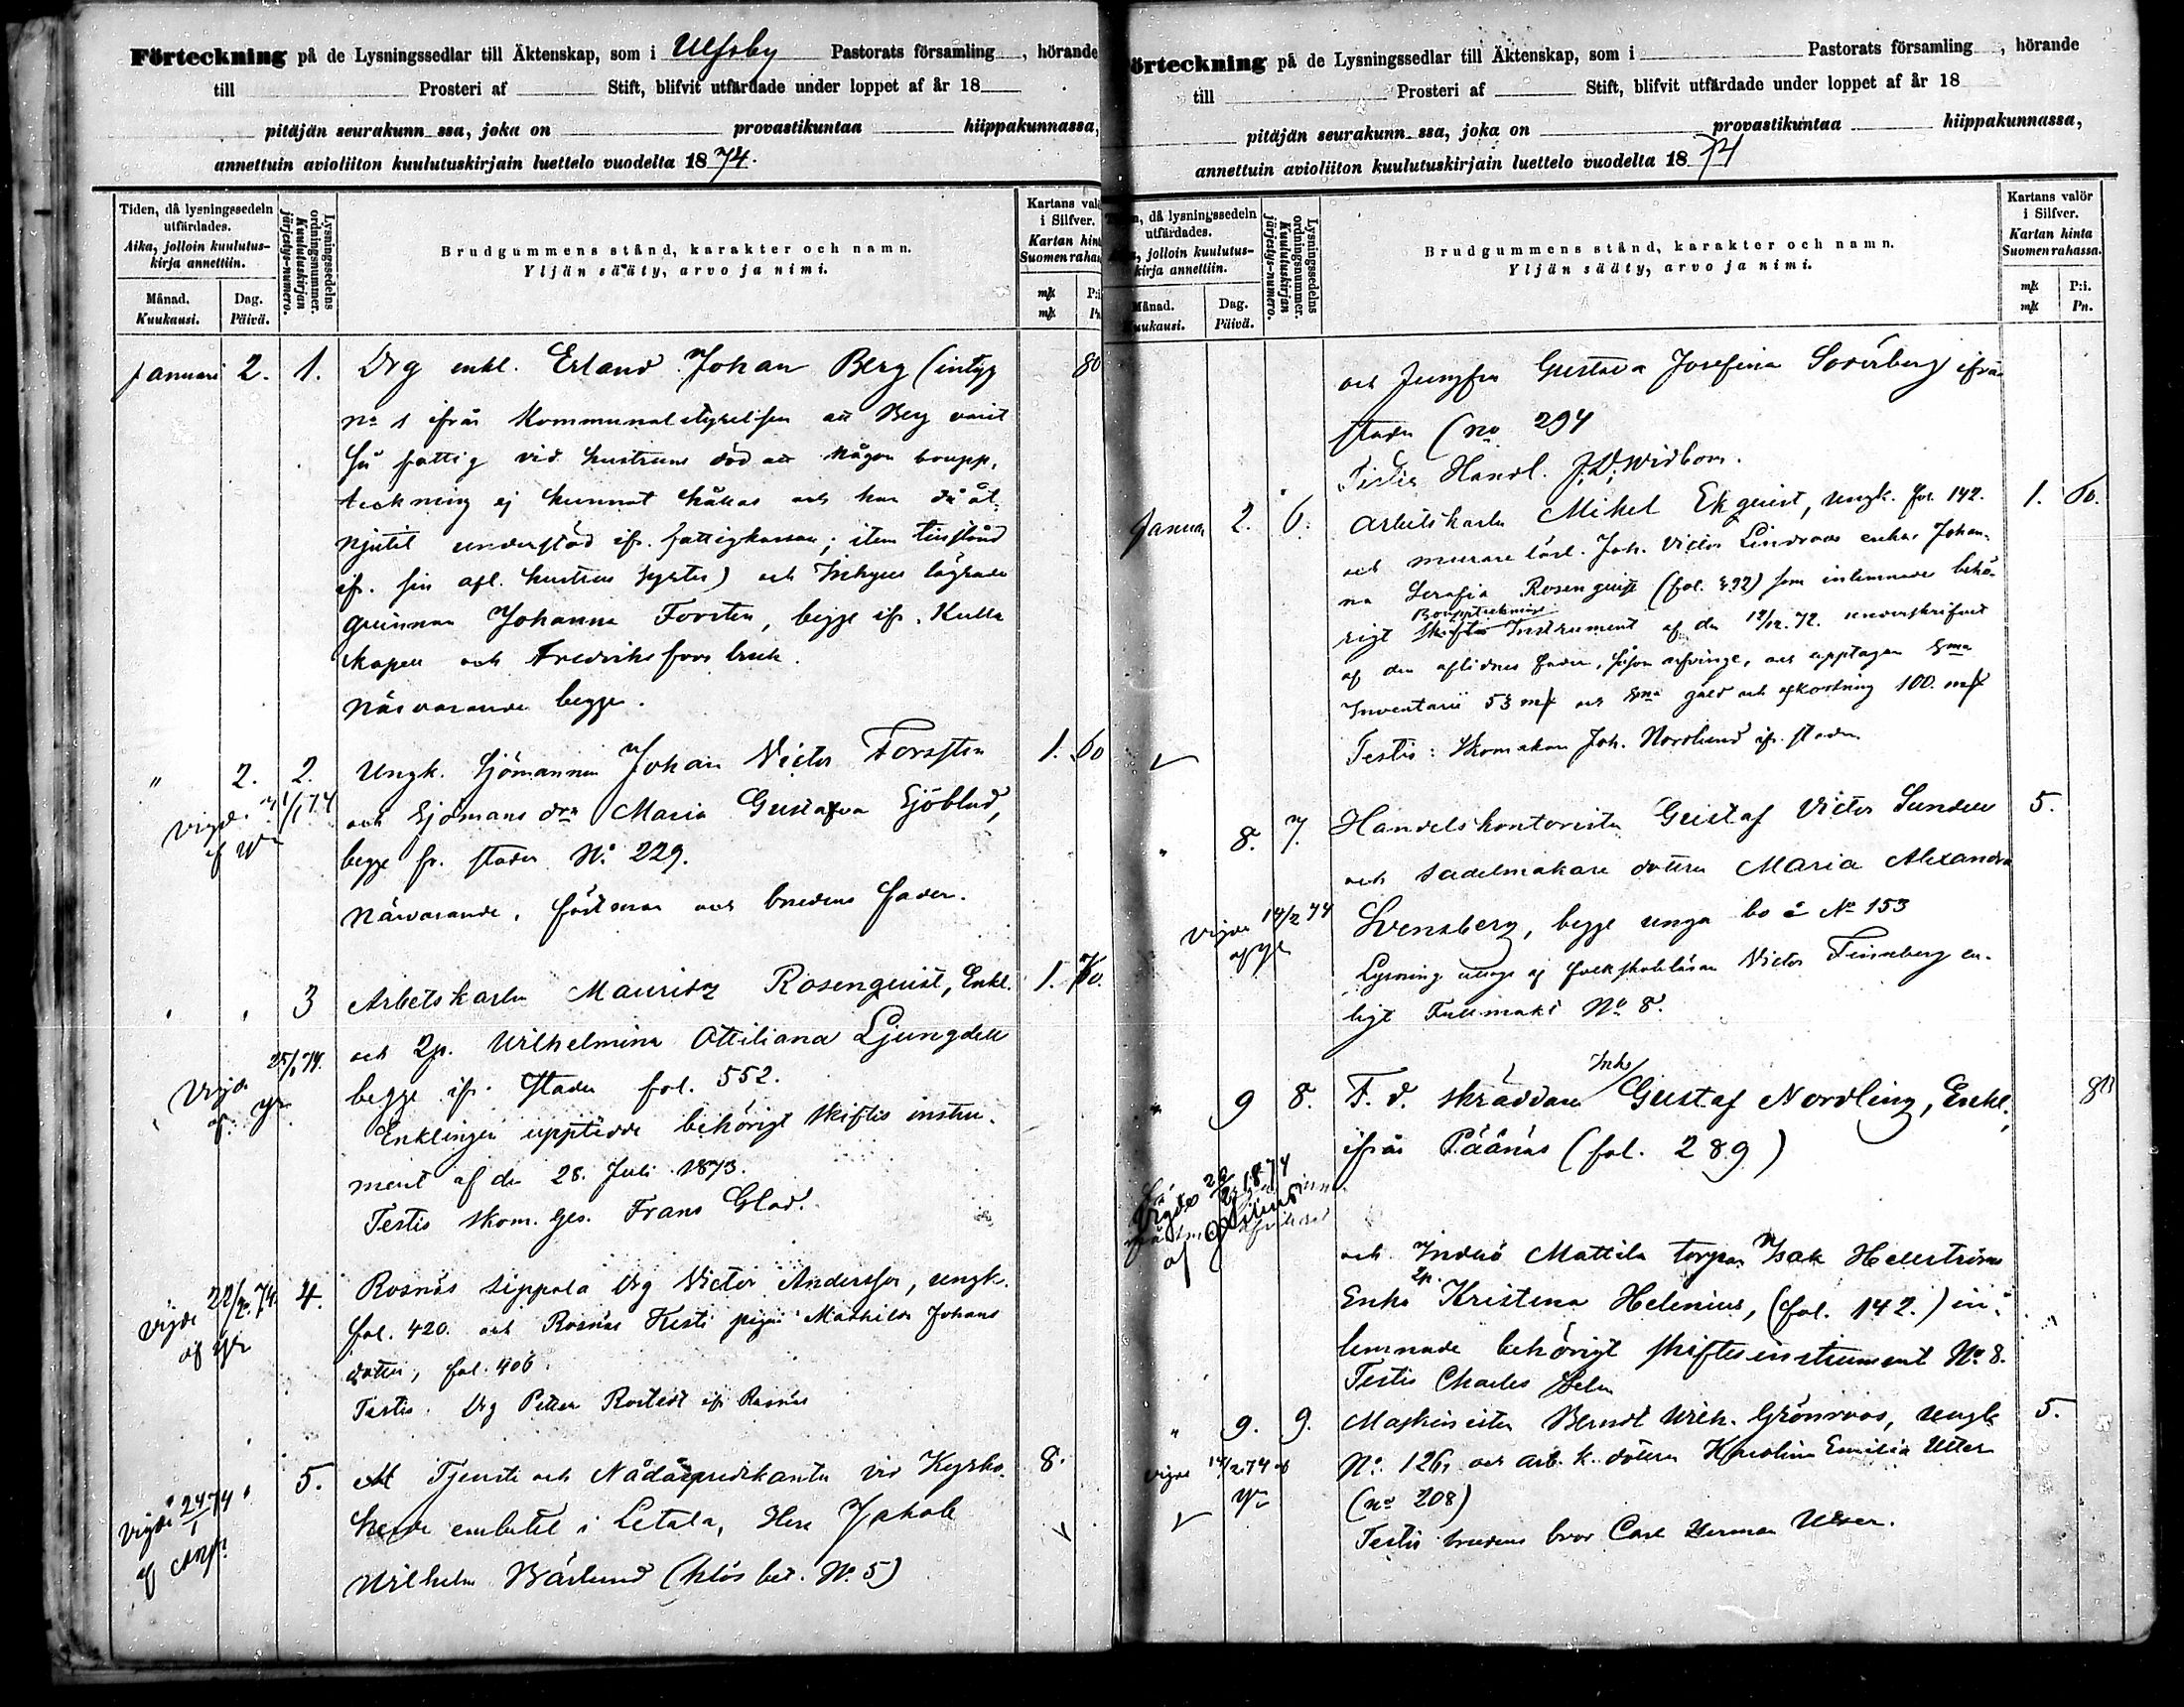 Förteckning på de Lysningssedlar till Äktenskap, som i Ulfsby Pastorats församling , hörande
till Prosteri af Stift, blifvit utfärdade under loppet af år 18
pitäjän seurakunn ssa, joka on provastikuntaa hiippakunnassa,
annettuin avioliiton kuulutuskirjain luettelo vuodelta 1874.
Tiden, då lysningssedeln utfärdades.
Aika, jolloin kuulutuskirja annettiin.
Månad. Kuukausi.
Dag. Päivä.
Lysningssedelns ordningsnummer.
Kuulutuskirjan järjestys-numero.
Brudgummens stånd, karakter och namn.
Yljän sääty, arvo ja nimi.
Kartans i Silfver.
Kartan Suomen
Januari 2. 1. Drg enkl. Erland Johan Berg (intyg 80
no 1 ifrån Kommunalstyrelsen att Berg varit
så fattig vid hustruns död att någon boupp-
teckning ej kunnat hållas och har då åt-
njutit understöd ifr. fattigkassan; item
ifr. sin afl. hustrus syster) och Inhyses
qvinnan Johanna Forstén, begge ifr. Kulla
kapell och Fredriksfors bruk.
Närvarande begge.
" 2. 2. Ungk. Sjömannen Johan Victor Forsstén 1. 60
och Sjömans dr Maria Gustafva Sjöblad,
begge fr. staden No 229.
Närvarande, fästman och brudens fader.
3 Arbetskarln Mauritz Rosenquist, Enkl. 1. 60.
och 2p. Wilhelmina Ottiliana Ljungdell
begge ifr. staden fol. 552.
Enklingen uppteedde behörigt skiftes instru-
ment af den 28. Juli 1873.
Testis skom. ges. Frans Glad.
Vigde 22/2.74. 4. Rosnäs Sippola Drg Victor Andersson, ungk.
fol. 420. och Rosnäs Kesti pigan Mathilda Johans
dotter, fol. 406.
Testis. Drg Petter Rostedt ifr Rosnäs
5. Tjenste och Nådårspredikanten vid Kyrko- 8.
herde embetet i Letala, Herr Jakob
Wilhelm Bärlund (hlös bet. No 5)
Förteckning på de Lysningssedlar till Äktenskap, som i Pastorats församling , hörande
till Prosteri af Stift, blifvit utfärdade under loppet af år 18
pitäjän seurakunn ssa, joka on provastikuntaa hiippakunnassa,
annettuin avioliiton kuulutuskirjain luettelo vuodelta 1874
då lysningssedeln utfärdades.
jolloin kuulutuskirja annettiin.
Månad.
Dag. Päivä.
Lysningssedelns ordningsnummer.
Kuulutuskirjan järjestys-numero.
Brudgummens stånd, karakter och namn.
Yljän sääty, arvo ja nimi.
Kartans valör i Silfver.
Kartan hinta Suomen rahassa.
P:i. Pn.
och Jungfru Gustava Josefina Söderberg ifrån
staden (no 294
Testis Handl. J. D. Widbom.
Januari 2. 6. Arbetskarln Mikel Ekquist, ungk. fol. 142. 1. 60.
och murare lärl. Joh. Victor Lindroos enka Johan-
na Serafia Rosenquist (fol. ) som inlemnade behö-
Boupptecknings
rigt Skiftes Instrument af den 12/12.72. underskrifvet
af den aflidnes fader, såsom arfvinge, och upptagen Sma
Inventarii 53 mk och Sma gäld och afkortning 100. mk
Testis: Skomakare Joh. Nordlund ifr. staden
" 8. 7. Handelskontoristen Gustaf Victor Sundell 5.
och sadelmakare dottren Maria Alexandra
Svensberg, begge unga bo å No 153
Lysning uttogs af folkskoleläraren Victor Finnberg en-
ligt Fullmakt No 8.
Inh
" 9 8. F. d. skräddare Gustaf Nordling, Enkl., 80
ifrån Päänäs (fol. 289)
och Inderö Mattila torpar Isak Hellströms
Enka 2p. Kristina Helenius, (fol. 142.) in-
lemnade behörigt skiftesinstrument No 8.
Testis Charles Helen
" 9. 9. Maskinisten Berndt Wilh. Grönroos, ungk 5.
No. 126, och arb. k. dottren Karolina Emilia Utter
(no 208)
Testis brudens bror Carl Herman Utter.